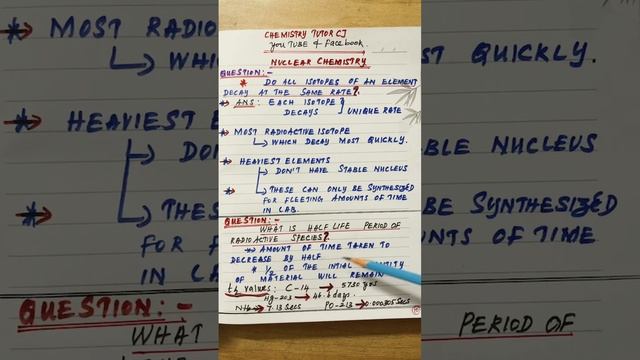 CHEMISTRY TUTOR CJ
YOU TUBE & Facebook.
NUCLEAR CHEMISTRY
QUESTION:-
* DO ALL ISOTOPES OF AN ELEMENT
DECAY AT THE SAME RATE?
* ANS: EACH ISOTOPE
DECAYS } UNIQUE RATE
* MOST RADIOACTIVE ISOTOPE
↳ WHICH DECAY MOST QUICKLY.
* HEAVIEST ELEMENTS
→ DON'T HAVE STABLE NUCLEUS
* → THESE CAN ONLY BE SYNTHESIZED
FOR FLEETING AMOUNTS OF TIME
IN LAB.
QUESTION:-
WHAT IS HALF LIFE PERIOD OF
RADIOACTIVE SPECIES?
→ AMOUNT OF TIME TAKEN TO
DECREASE BY HALF
* 1/2 OF THE INTIAL
OF MATERIAL WILL REMAIN
t½ VALUES: C-14 → 5730 yrs
Hg-203 → 46.6 days.
→ 7.13 Secs PO-213 → 0.000305 Secs
* MOST RADIO
↳ WHICH
* HEAVIEST E
→ DON
* → THES
FOR
IN L
QUESTION:-
WHAT
OST QUICKLY.
BLE NUCLEUS
BE SYNTHESIZED
NTS OF TIME
PERIOD OF